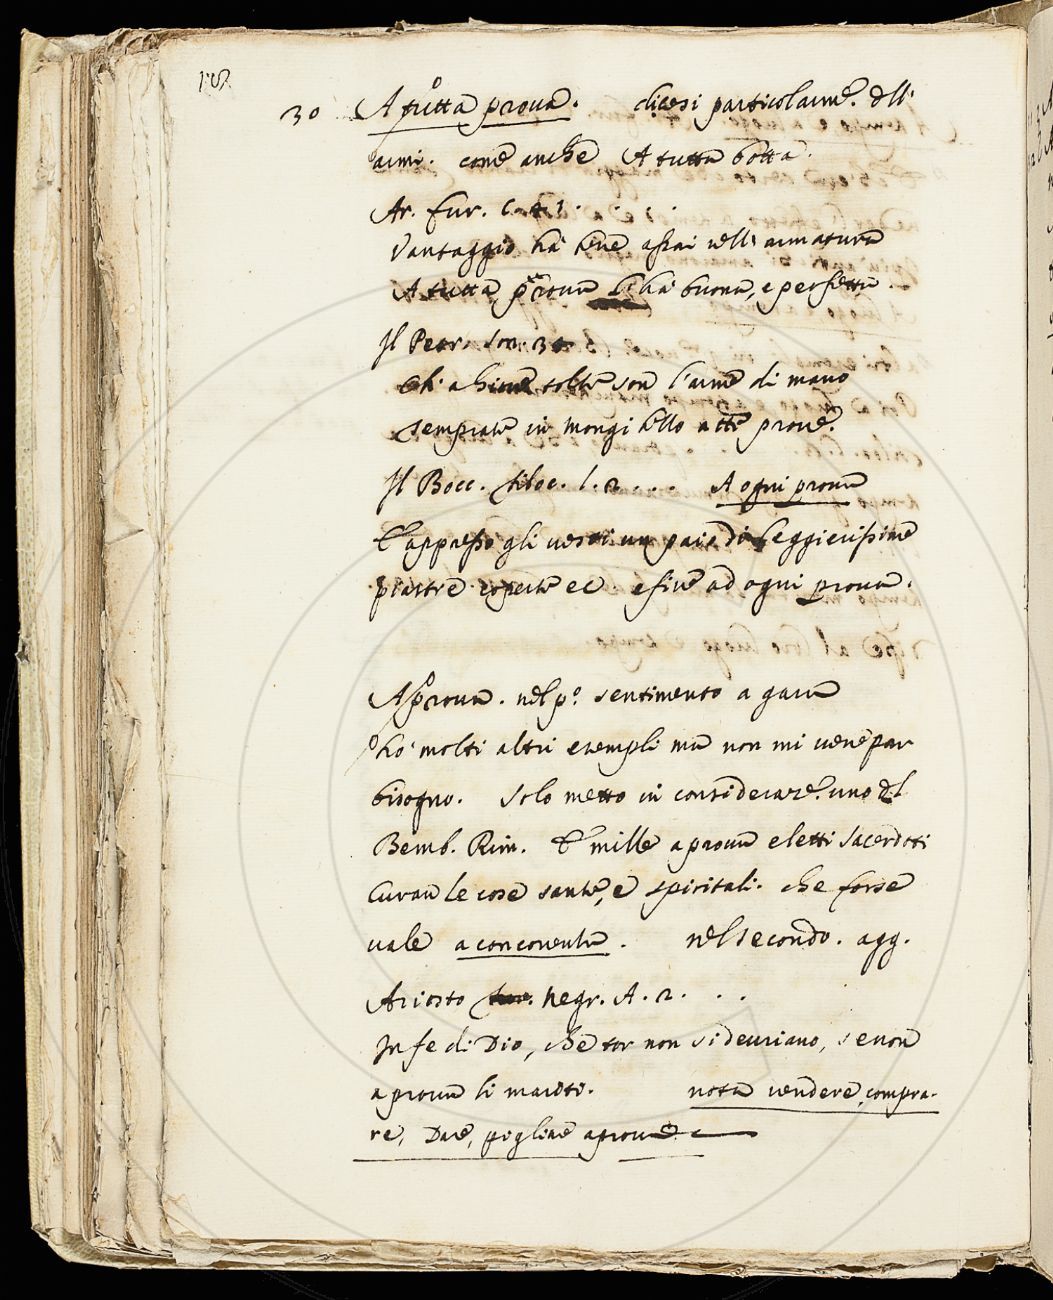 30 A tutta proua. dicesi particolarme. dell'
armi. come anche A tutta botta.
Ar. fur. C.
Vantaggio ha bene assai nell'armatura
A tutta proua l'ha buona, e perfetta.
Il Petr. son.
tolte son l'arme di mano
Temprate in Mongibello a tte proue.
Il Bocc. filoc. l. 2. . . . A ogni proua
Et appresso gli uesti un paio di leggierissime
piastre ec e fine ad ogni proua.
A proua. nel po. sentimento a gara
ho molti altri exempli ma non mi uene par
bisogno. Solo metto in consideraze. uno del
Bemb. Rim. Et mille a proua eletti sacerdoti
Curan le cose sante, e spiritali. che forse
uale a concorrentia. nel secondo. agg.
Ariosto Negr. A. 2. . .
In fe di Dio, che tor non si deuriano, se non
a proua li mariti. nota uendere, compra-
re, Dare, pigliare a proua.